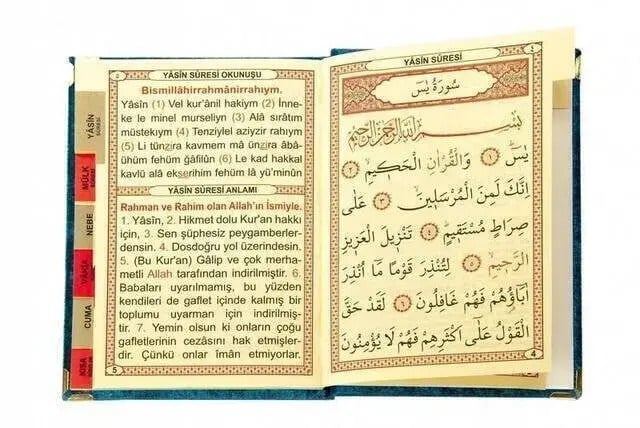 ٤
YÂSÎN SÛRESİ
سُورَةُ يٰسٓ
بِسْمِ اللّٰهِ الرَّحْمٰنِ الرَّحِيمِ
يٰسٓ ﴿١﴾ وَالْقُرْاٰنِ الْحَكِيمِ ﴿٢﴾
اِنَّكَ لَمِنَ الْمُرْسَلِينَ ﴿٣﴾ عَلٰى
صِرَاطٍ مُسْتَقِيمٍ ﴿٤﴾ تَنْزِيلَ الْعَزِيزِ
الرَّحِيمِ ﴿٥﴾ لِتُنْذِرَ قَوْمًا مَٓا اُنْذِرَ
اٰبَٓاؤُهُمْ فَهُمْ غَافِلُونَ ﴿٦﴾ لَقَدْ حَقَّ
الْقَوْلُ عَلٰٓى اَكْثَرِهِمْ فَهُمْ لَا يُؤْمِنُونَ
4
٥
YÂSÎN SÛRESİ OKUNUŞU
Bismillâhirrahmânirrahıym.
Yâsîn (1) Vel kur'ânil hakiym (2) İnne-
ke le minel murseliyn (3) Alâ sırâtım
müstekıym (4) Tenziylel aziyzir rahıym
(5) Li tünzira kavmem mâ ünzira âbâ-
ühüm fehüm ğâfilûn (6) Le kad hakkal
kavlü alâ ekserihim fehüm lâ yü'minûn
YÂSÎN SÛRESİ ANLAMI
Rahman ve Rahim olan Allah'ın İsmiyle.
1. Yâsîn, 2. Hikmet dolu Kur'an hakkı
için, 3. Sen şüphesiz peygamberler-
densin. 4. Dosdoğru yol üzerindesin.
5. (Bu Kur'an) Gâlip ve çok merha-
metli Allah tarafından indirilmiştir. 6.
Babaları uyarılmamış, bu yüzden
kendileri de gaflet içinde kalmış bir
toplumu uyarman için indirilmiş-
tir. 7. Yemin olsun ki onların çoğu
gafletlerinin cezasını hak etmişler-
dir. Çünkü onlar îmân etmiyorlar.
5
YÂSÎN
SÛRESİ
MÜLK
SÛRESİ
NEBE
VÂKIA
SÛRESİ
CUMA
KISA